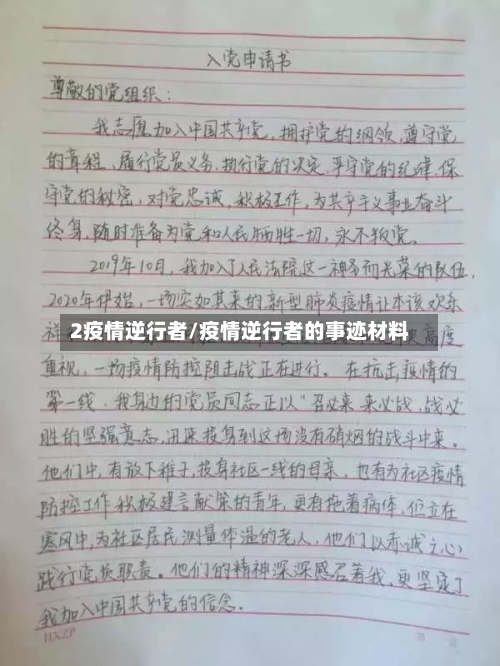 入党申请书
尊敬的党组织：
我志愿加入中国共产党，拥护党的纲领，遵守党
的章程，履行党员义务，执行党的决定，严守党的纪律，保
守党的秘密，对党忠诚，积极工作，为共产主义事业奋斗
终身，随时准备为党和人民牺牲一切，永不叛党。
2019年10月，我加入了人民法院这一神圣而光荣的队伍，
2020年伊始，一场突如其来的新型肺炎疫情让本该欢乐
2疫情逆行者/疫情逆行者的事迹材料
高度
重视，一场疫情防控阻击战正在进行。在抗击疫情的
第一线，我身边的党员同志正以"召必来，来必战，战必
胜的坚强意志，迅速投身到这场没有硝烟的战斗中来。
他们中，有放下稚子，投身社区一线的母亲，也有为社区疫情
防控工作积极建言献策的青年，更有拖着病体，伫立在
寒风中，为社区居民测量体温的老人，他们以赤诚之心
践行党员职责。他们的精神深深感召着我，更坚定了
我加入中国共产党的信念。
HXZP
第 页